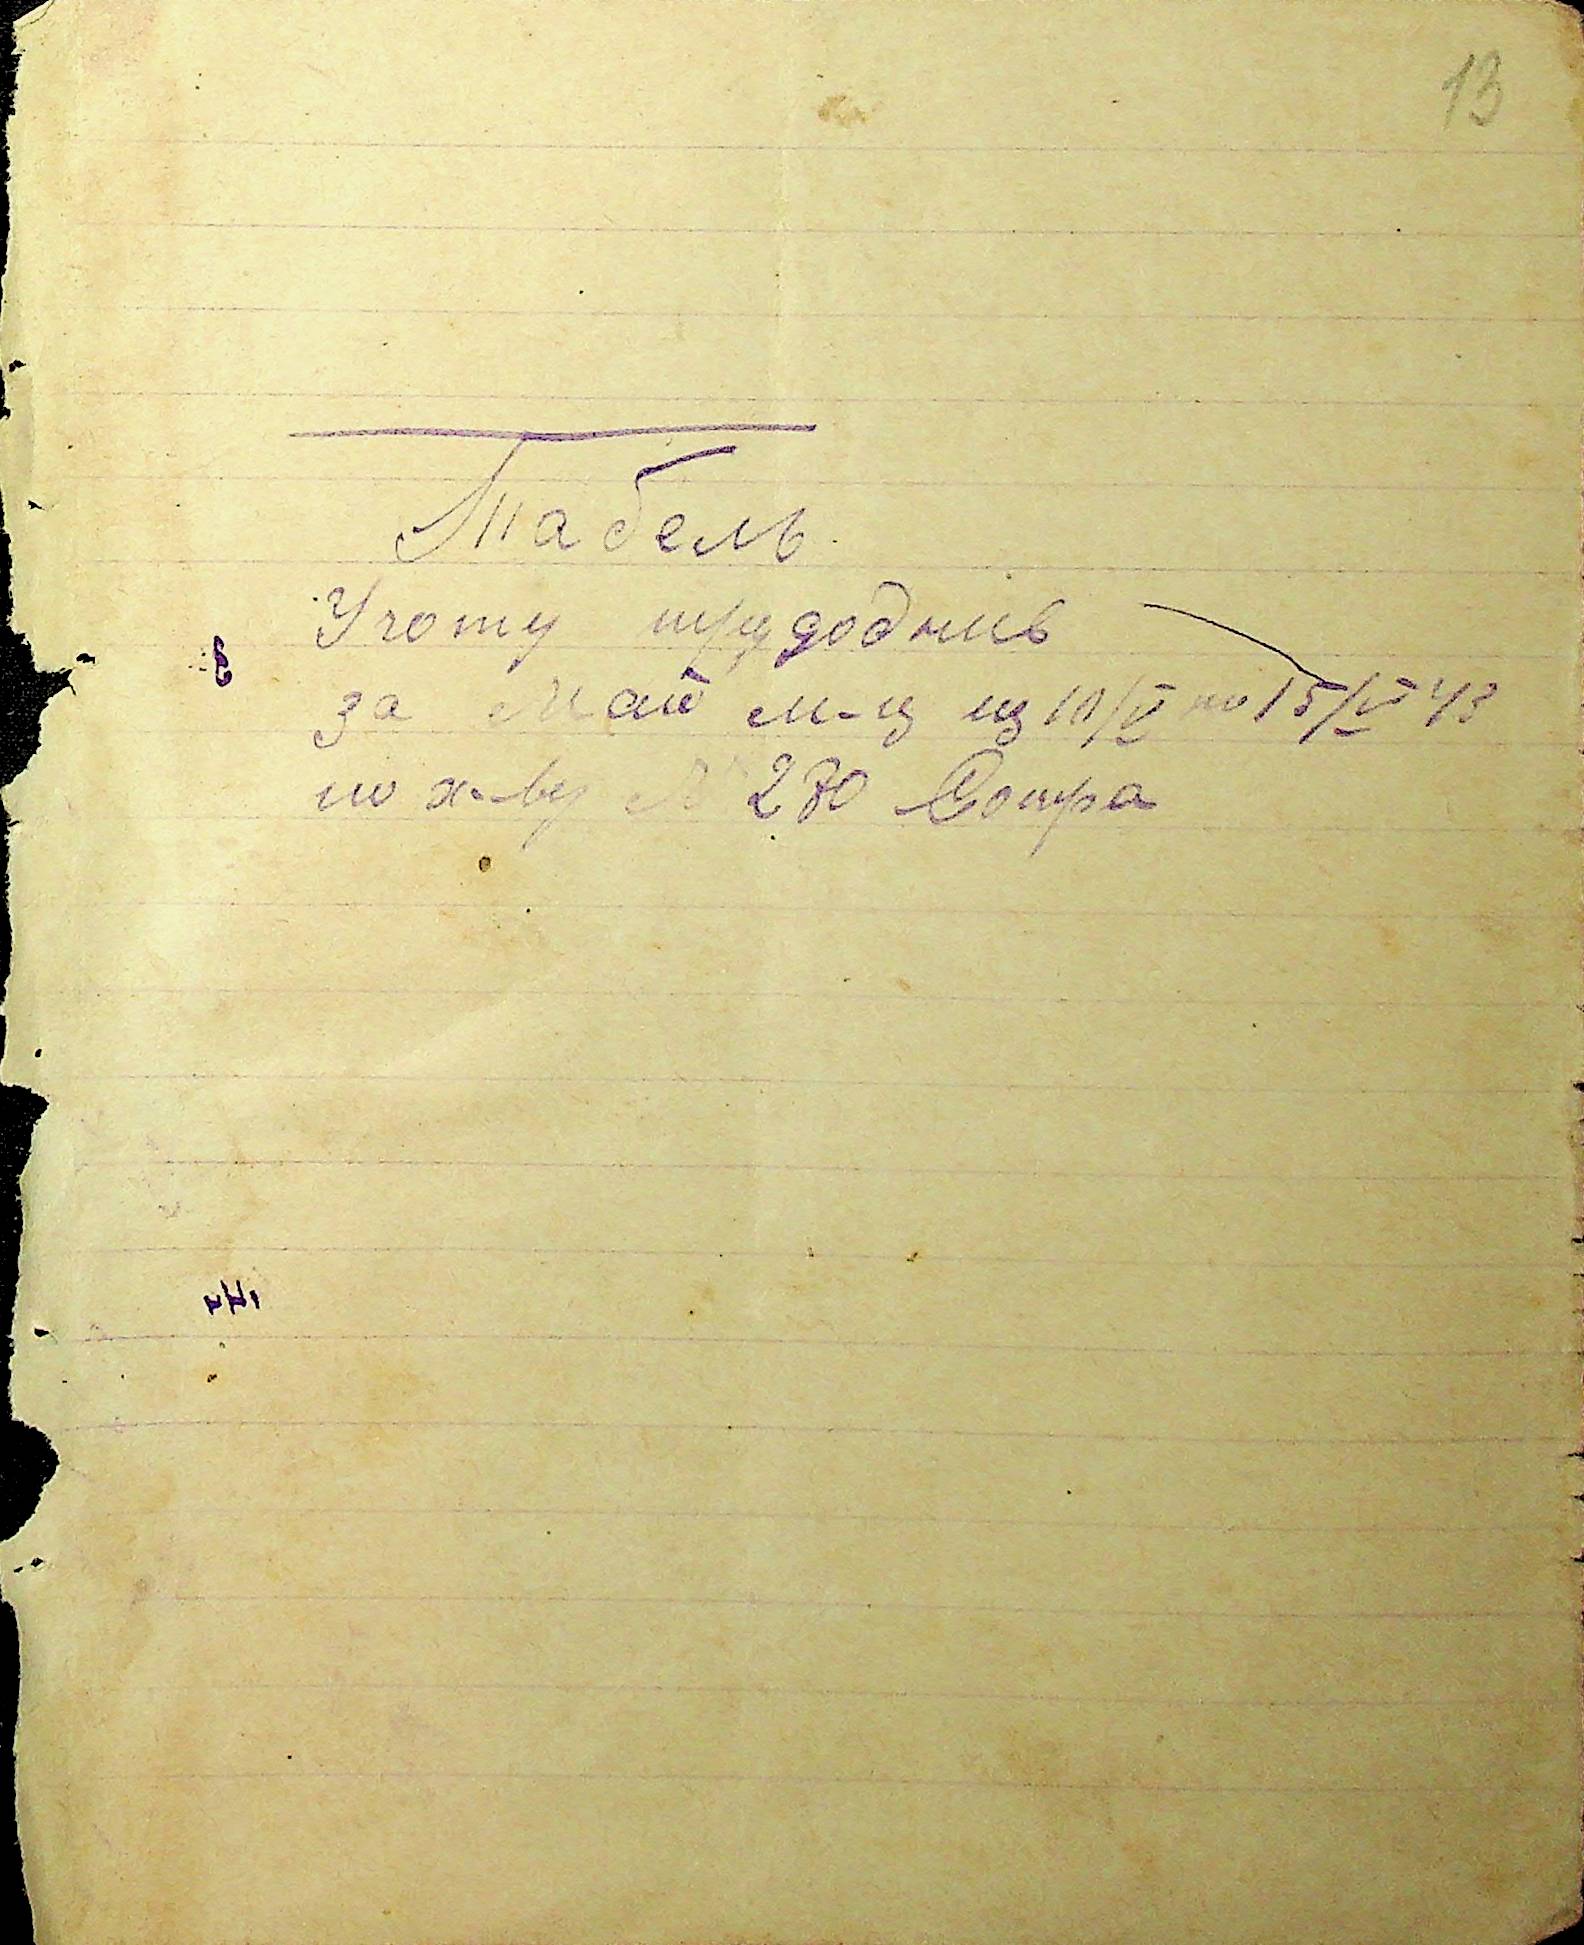 13
Табель
Учоту трудоднив
за май м-ц из 10/V по 15/V 43
по х-ву № 270 Сотра